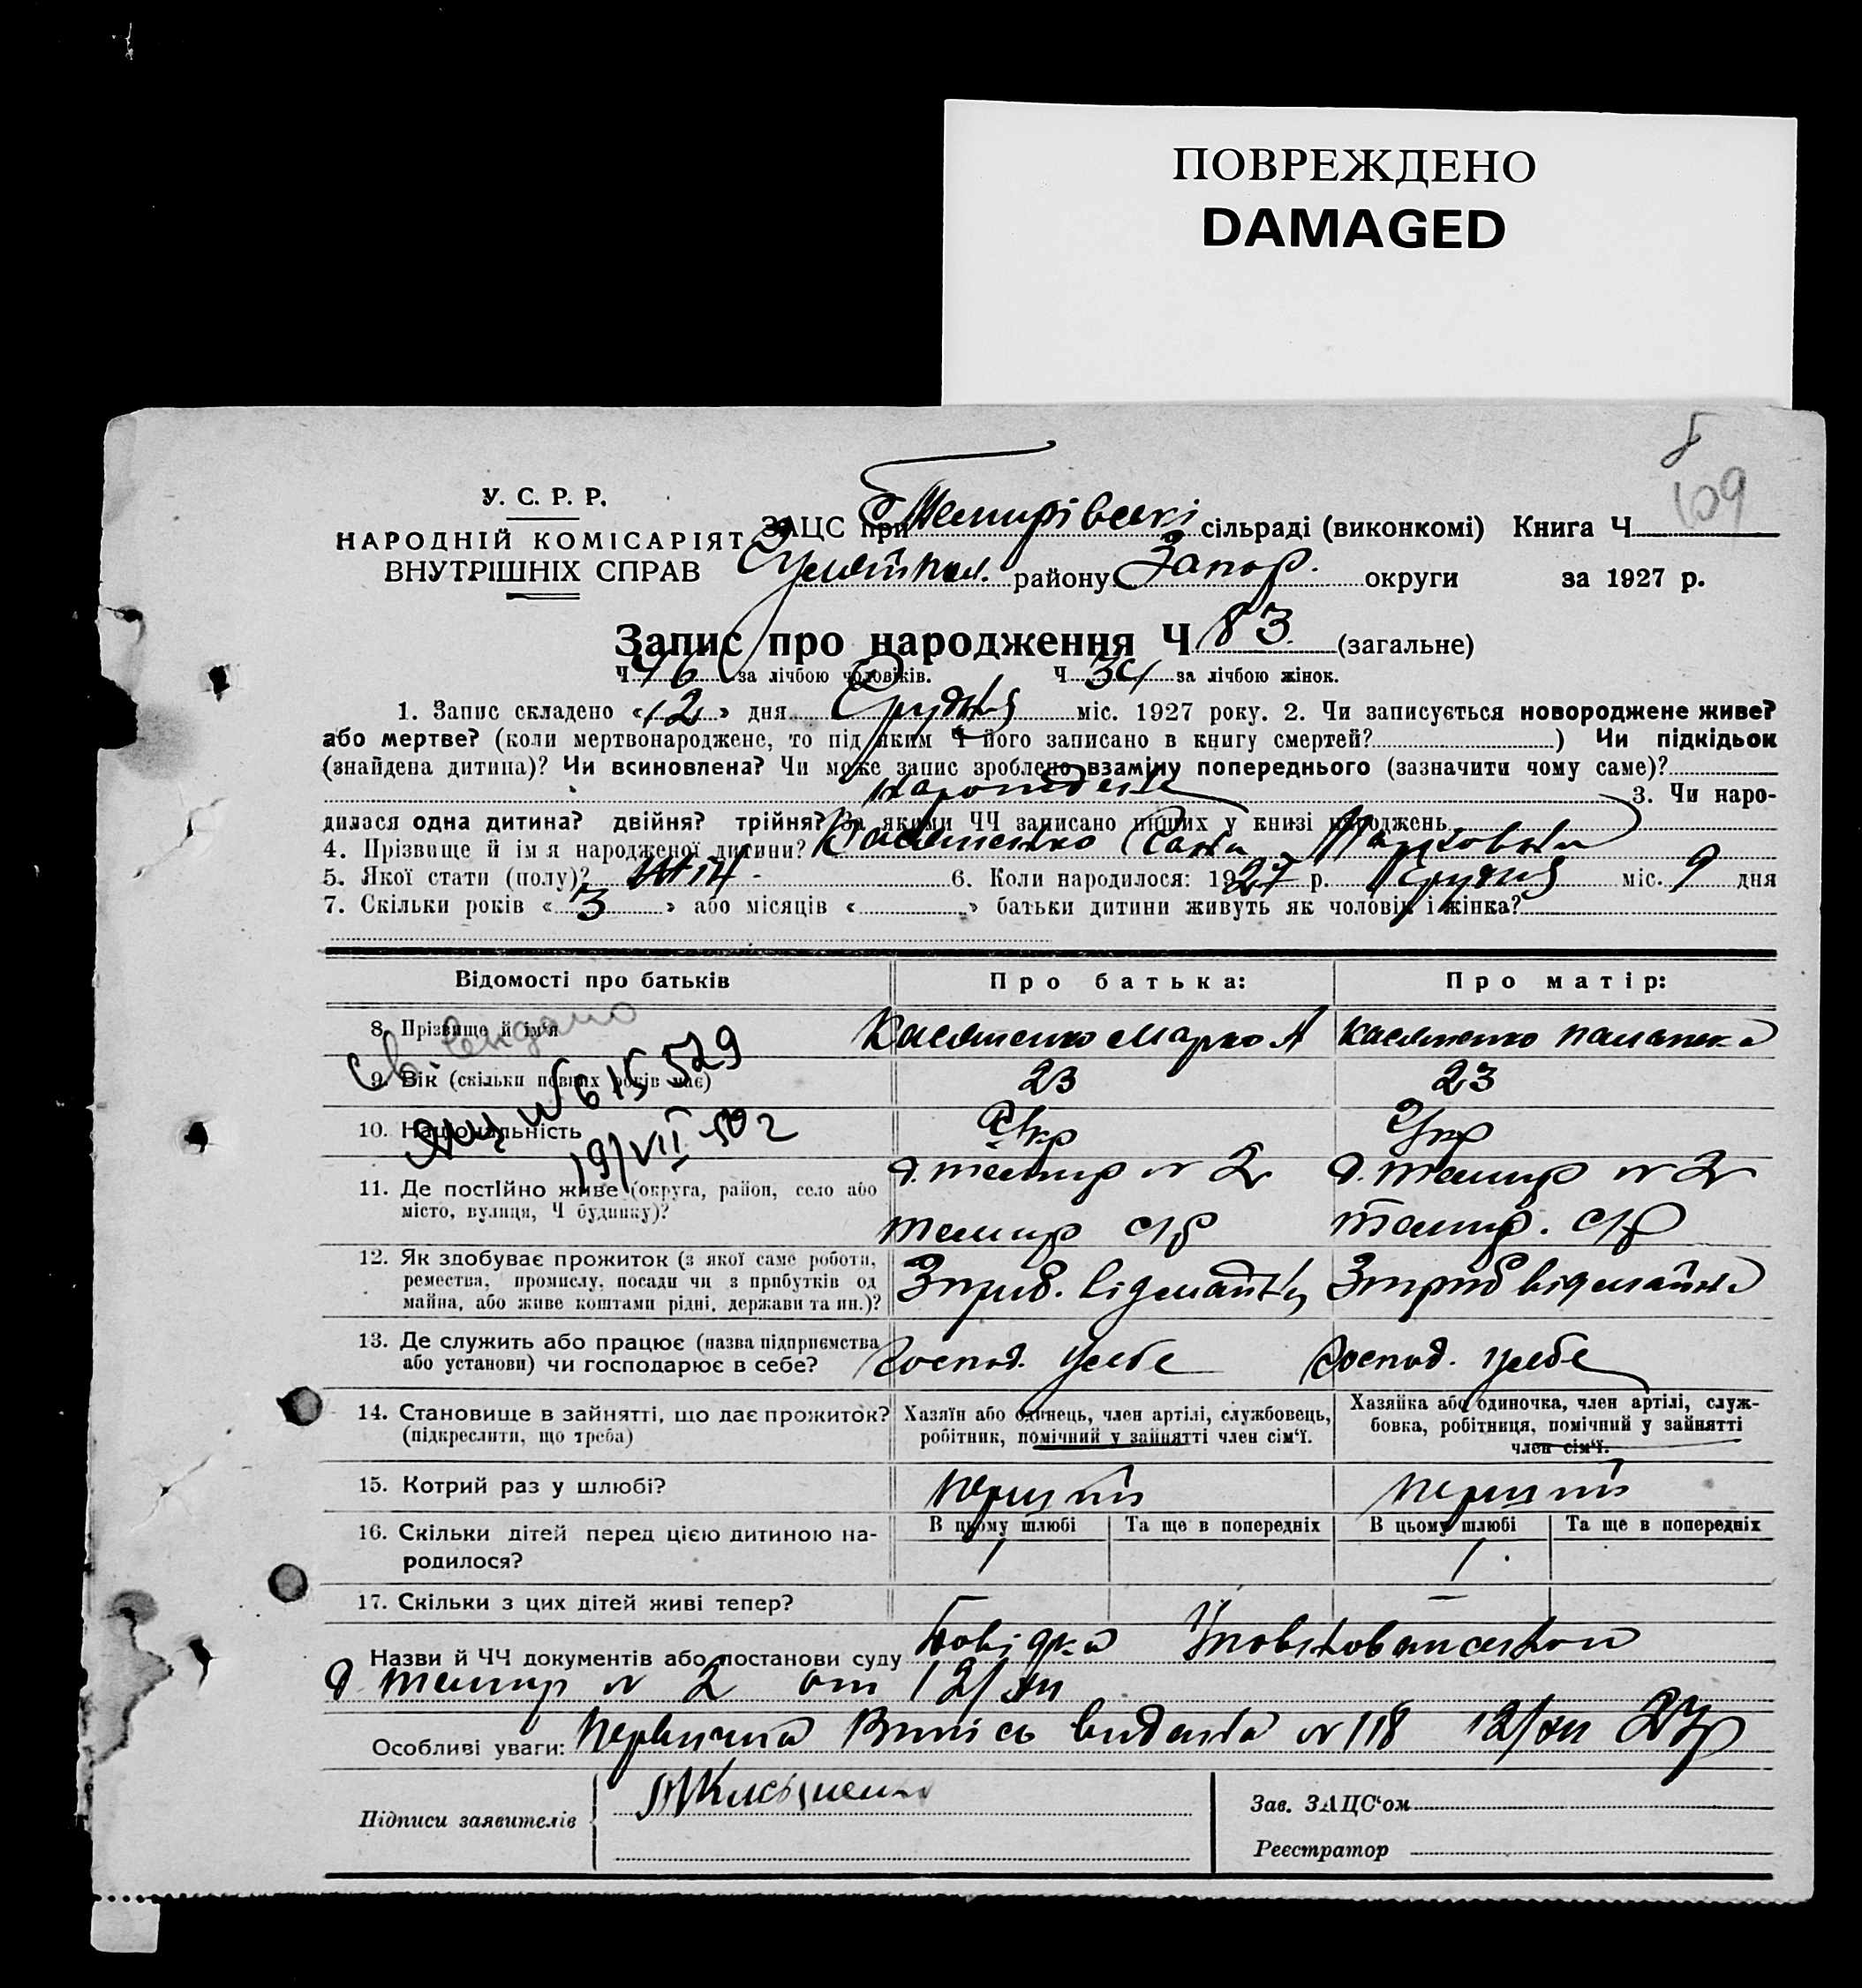 ПОВРЕЖДЕНО
DAMAGED
109
У. С. Р. Р.
НАРОДНІЙ КОМІСАРІЯТ
ВНУТРІШНІХ СПРАВ
ЗАЦС при Темирівскі сільраді (виконкомі) Книга Ч
району Запор. округи за 1927 р.
Запис про народження Ч 83 (загальне)
Ч 46 за лічбою чоловіків. Ч за лічбою жінок.
1. Запис складено «12» дня Грудня міс. 1927 року. 2. Чи записується новороджене живе?
або мертве? (коли мертвонароджене, то під яким Ч його записано в книгу смертей? ) Чи підкідьок
(знайдена дитина)? Чи всиновлена? Чи може запис зроблено взаміну попереднього (зазначити чому саме)?
3. Чи наро-
дилася одна дитина? двійня? трійня? За якими ЧЧ записано инших у книзі народжень
4. Прізвище й ім'я народженої дитини? Касяненко Марковна
5. Якої стати (полу)? жін. 6. Коли народилося: 1927 р. Грудня міс. 9 дня
7. Скільки років «3» або місяців « » батьки дитини живуть як чоловік і жінка?
Відомості про батьків Про батька: Про матір:
8. Прізвище й ім'я Касяненко Марко А Касяненко Палажка
9. Вік (скільки повних років має) 23 23
615529
10. Національність Укр Укр
19/VII
11. Де постійно живе (округа, район, село або
місто, вулиця, Ч будинку)?
д. Темир № 2 д. Темир № 2
Темир с/р Темир. с/р
12. Як здобуває прожиток (з якої саме роботи,
ремества, промислу, посади чи з прибутків од
майна, або живе коштами рідні, держави та ин.)?
З приб. від майна З приб від майна
13. Де служить або працює (назва підприємства
або установи) чи господарює в себе?
Господ. у себе Господ. у себе
14. Становище в зайнятті, що дає прожиток?
(підкреслити, що треба)
Хазяїн або одинець, член артілі, службовець,
робітник, помічний у зайнятті член сім'ї.
Хазяйка або одиночка, член артілі, служ-
бовка, робітниця, помічний у зайнятті
член сім'ї.
15. Котрий раз у шлюбі? перший перший
16. Скільки дітей перед цією дитиною на-
родилося?
В цьому шлюбі Та ще в попередніх В цьому шлюбі Та ще в попередніх
1 1
17. Скільки з цих дітей живі тепер? –
Назви й ЧЧ документів або постанови суду Довідка
д Темир № 2 от 12/XII
Особливі уваги: Первична Випісь видана № 118 12/XII 27р
Підписи заявителів
Зав. ЗАЦС'ом
Реєстратор